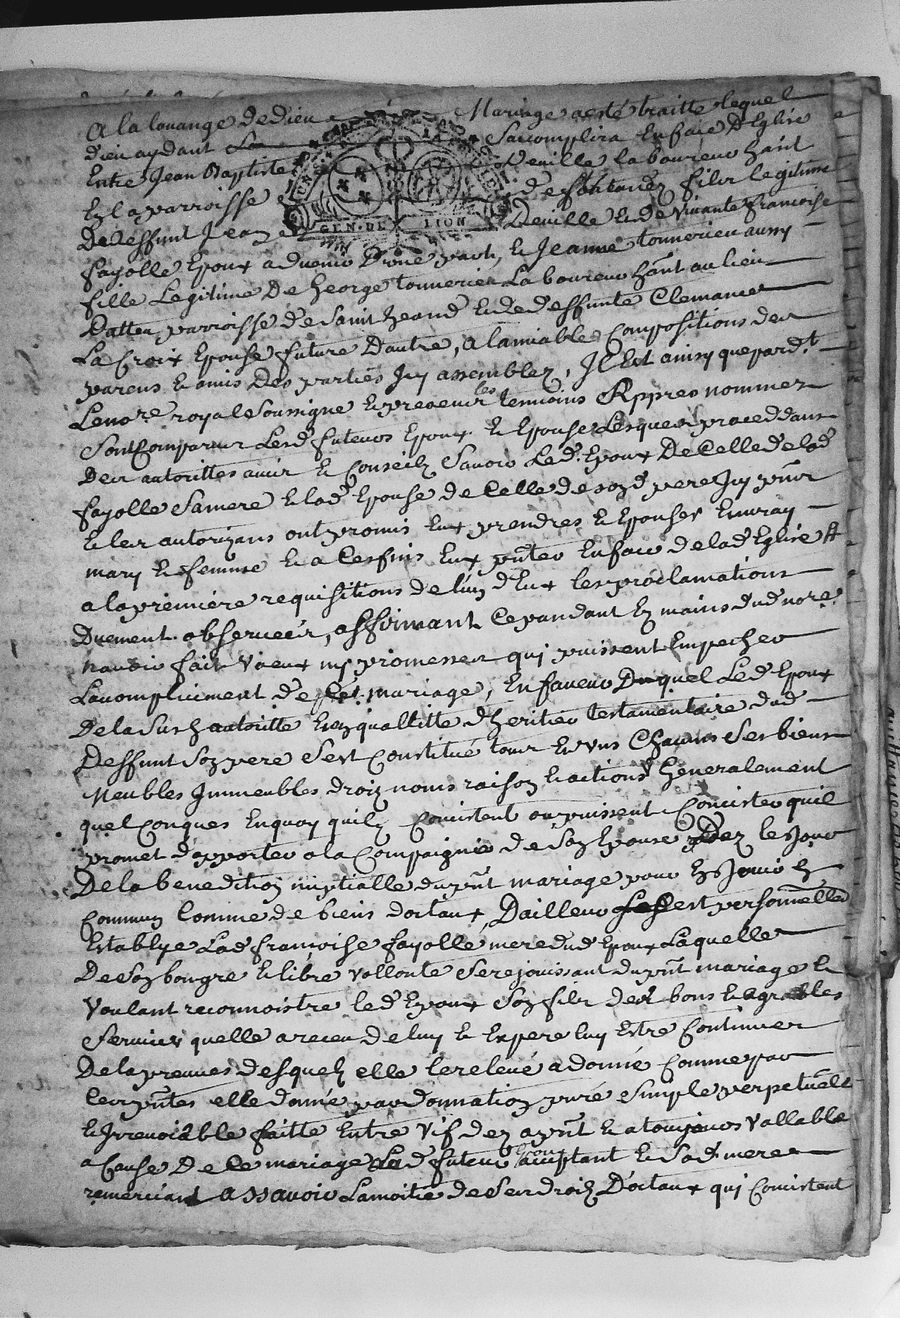 A la louange de dieu Mariage a esté traitté lequel
dieu aydant Sacomplira En face d'Eglise
Entre Jean Baptiste Deville laboureur habt
En la parroisse de fontanez filz legitime
De deffunt Jean Deville Et de vivante francoise
fayolle Epoux advenir d'une part, Et Jeanne tonnerieu aussy
fille Legitime De George tonnerieu La boureur habt au lieu
Datteu parroisse de Saint heand Et de deffunte Clemance
La Croix Epouse future D'autre, a lamiable Compositions des
parens Et amis des parties Icy assemblez, Il Est ainsy que pardt
Le nore royal Soussigne Et presence les temoins Appres nommez
Sont Comparus Lesd futeurs Epoux Et Epouse Lesques proceddans
De autorittes avis Et Conseilz Savoir Led Epoux De Celle de lad
fayolle Sa mere Et lad Epouse de Celle de sond pere Icy pnts
Et les autorizans ont promis Eux prendres Et Epouser En vray
mary Et femme Et a Ces fins Eux pnter En face de lad Eglise
a la premiere requisitions de lun d'Eux les proclamations
Duement observeés, affirmant Cepandant Ez mains dud nore
navoir fait vœux ny promesses qui puissent Empecher
Lacomplicement de Cet mariage, En faveur Duquel Led Epoux
De la Susd autoritte En qualtitte d'heritier testamentaire dud
Deffunt Son pere Sest Constitué tous Et uns Chacuns Ses biens
Meubles Immeubles droiz noms raison Et actions Generalement
quelConques En quoy quilz Concistent ou puissent Concister quil
promet d'apporter a la Compaignie de Son Epouse dez le Jour
De la benedition nuptialle du pnt mariage pour En Jouir En
Commun Comme de biens dotaux, Dailleur Sest personnelled
Establye Lad francoise fayolle mere dud Epoux Laquelle
De Son bongre Et libre vollonte Se rejouissant du pnt mariage Et
Voulant reconnoistre led Epoux Son filz des bons Et agreables
Services quelle a receu de luy Et Expere luy Estre Continuer
De la preuves desquelz elle lereleve a donné Comme par
Ces pntes elle donne par donnation pure Simple perpetuelle
Et Irrevocable faitte Entre Vif dez a pnt Et a toujours Vallable
a Cause De Ce mariage aud futeur Epoux acceptant Et Sad mere
remerciant assavoir La moitie de Sen droiz Dotaux qui Concistent
GEN·DE LION